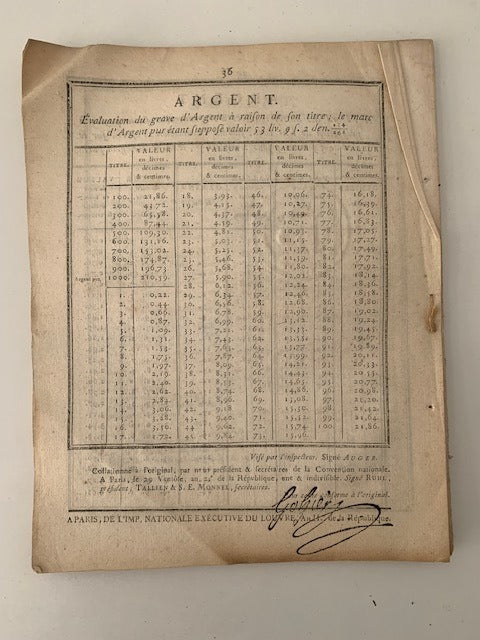 36
ARGENT.
Évaluation du grave d'Argent à raison de son titre ; le marc
d'Argent pur étant supposé valoir 53 liv. 9 s. 2 den.
TITRE. VALEUR en livres, décimes & centimes. TITRE. VALEUR en livres, décimes & centimes. TITRE. VALEUR en livres, décimes & centimes. TITRE. VALEUR en livres, décimes & centimes.
100. 21,86. 18. 3,93. 46. 10,06. 74. 16,18.
200. 43,72. 19. 4,15. 47. 10,27. 75. 16,39.
300. 65,58. 20. 4,37. 48. 10,49. 76. 16,61.
400. 87,44. 21. 4,59. 49. 10,71. 77. 16,83.
500. 109,30. 22. 4,81. 50. 10,93. 78. 17,05.
600. 131,16. 23. 5,03. 51. 11,15. 79. 17,27.
700. 153,02. 24. 5,25. 52. 11,37. 80. 17,49.
800. 174,87. 25. 5,46. 53. 11,59. 81. 17,71.
900. 196,73. 26. 5,68. 54. 11,80. 82. 17,92.
Argent pur, 1000. 218,59. 27. 5,90. 55. 12,02. 83. 18,14.
28. 6,12. 56. 12,24. 84. 18,36.
1. 0,22. 29. 6,34. 57. 12,46. 85. 18,58.
2. 0,44. 30. 6,56. 58. 12,68. 86. 18,80.
3. 0,66. 31. 6,78. 59. 12,90. 87. 19,02.
4. 0,87. 32. 6,99. 60. 13,12. 88. 19,24.
5. 1,09. 33. 7,21. 61. 13,33. 89. 19,45.
6. 1,31. 34. 7,43. 62. 13,55. 90. 19,67.
7. 1,53. 35. 7,65. 63. 13,77. 91. 19,89.
8. 1,75. 36. 7,87. 64. 13,99. 92. 20,11.
9. 1,97. 37. 8,09. 65. 14,21. 93. 20,33.
10. 2,19. 38. 8,31. 66. 14,43. 94. 20,55.
11. 2,40. 39. 8,52. 67. 14,65. 95. 20,77.
12. 2,62. 40. 8,74. 68. 14,86. 96. 20,98.
13. 2,84. 41. 8,96. 69. 15,08. 97. 21,20.
14. 3,06. 42. 9,18. 70. 15,30. 98. 21,42.
15. 3,28. 43. 9,40. 71. 15,52. 99. 21,64.
16. 3,50. 44. 9,62. 72. 15,74. 100. 21,86.
17. 3,72. 45. 9,84. 73. 15,96.
Visé par l'inspecteur. Signé AUGER.
Collationné à l'original, par nous président & secrétaires de la Convention nationale.
A Paris, le 29 Ventôse, an 2e de la République, une & indivisible. Signé RUHL,
président ; TALLIEN & S. E. MONNEL, secrétaires.
conforme à l'original.
A PARIS, DE L'IMP. NATIONALE EXÉCUTIVE DU LOUVRE, An II. de la République.